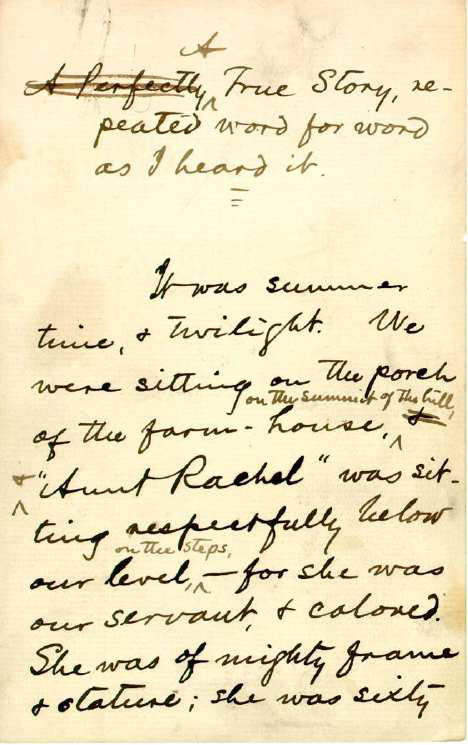 A
A Perfectly True Story, re-
peated word for word
as I heard it.
It was summer
time, & twilight. We
were sitting on the porch
on the summit of the hill,
of the farm-house, &
& "Aunt Rachel" was sit-
ting respectfully below
on the steps,
our level, – for she was
our servant, & colored.
She was of mighty frame
& stature; she was sixty